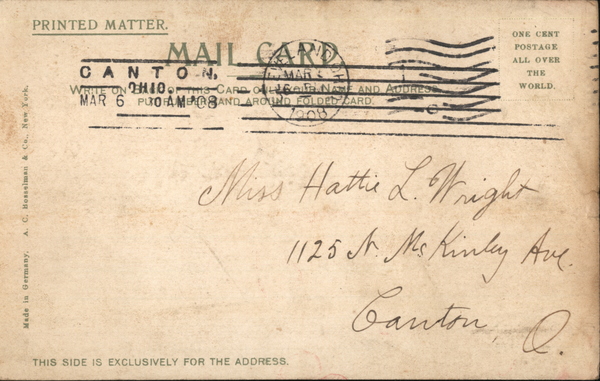 PRINTED MATTER.
MAIL CARD
ONE CENT
POSTAGE
ALL OVER
THE
WORLD.
CANTON,
OHIO.
MAR 6 10 AM '08
MAR
1908
WRITE ON OF THIS CARD ONLY YOUR NAME AND ADDRESS
AROUND FOLDED CARD.
Miss Hattie L. Wright
1125 N. McKinley Ave.
Canton, O.
Made in Germany. A. C. Bosselman & Co., New York.
THIS SIDE IS EXCLUSIVELY FOR THE ADDRESS.